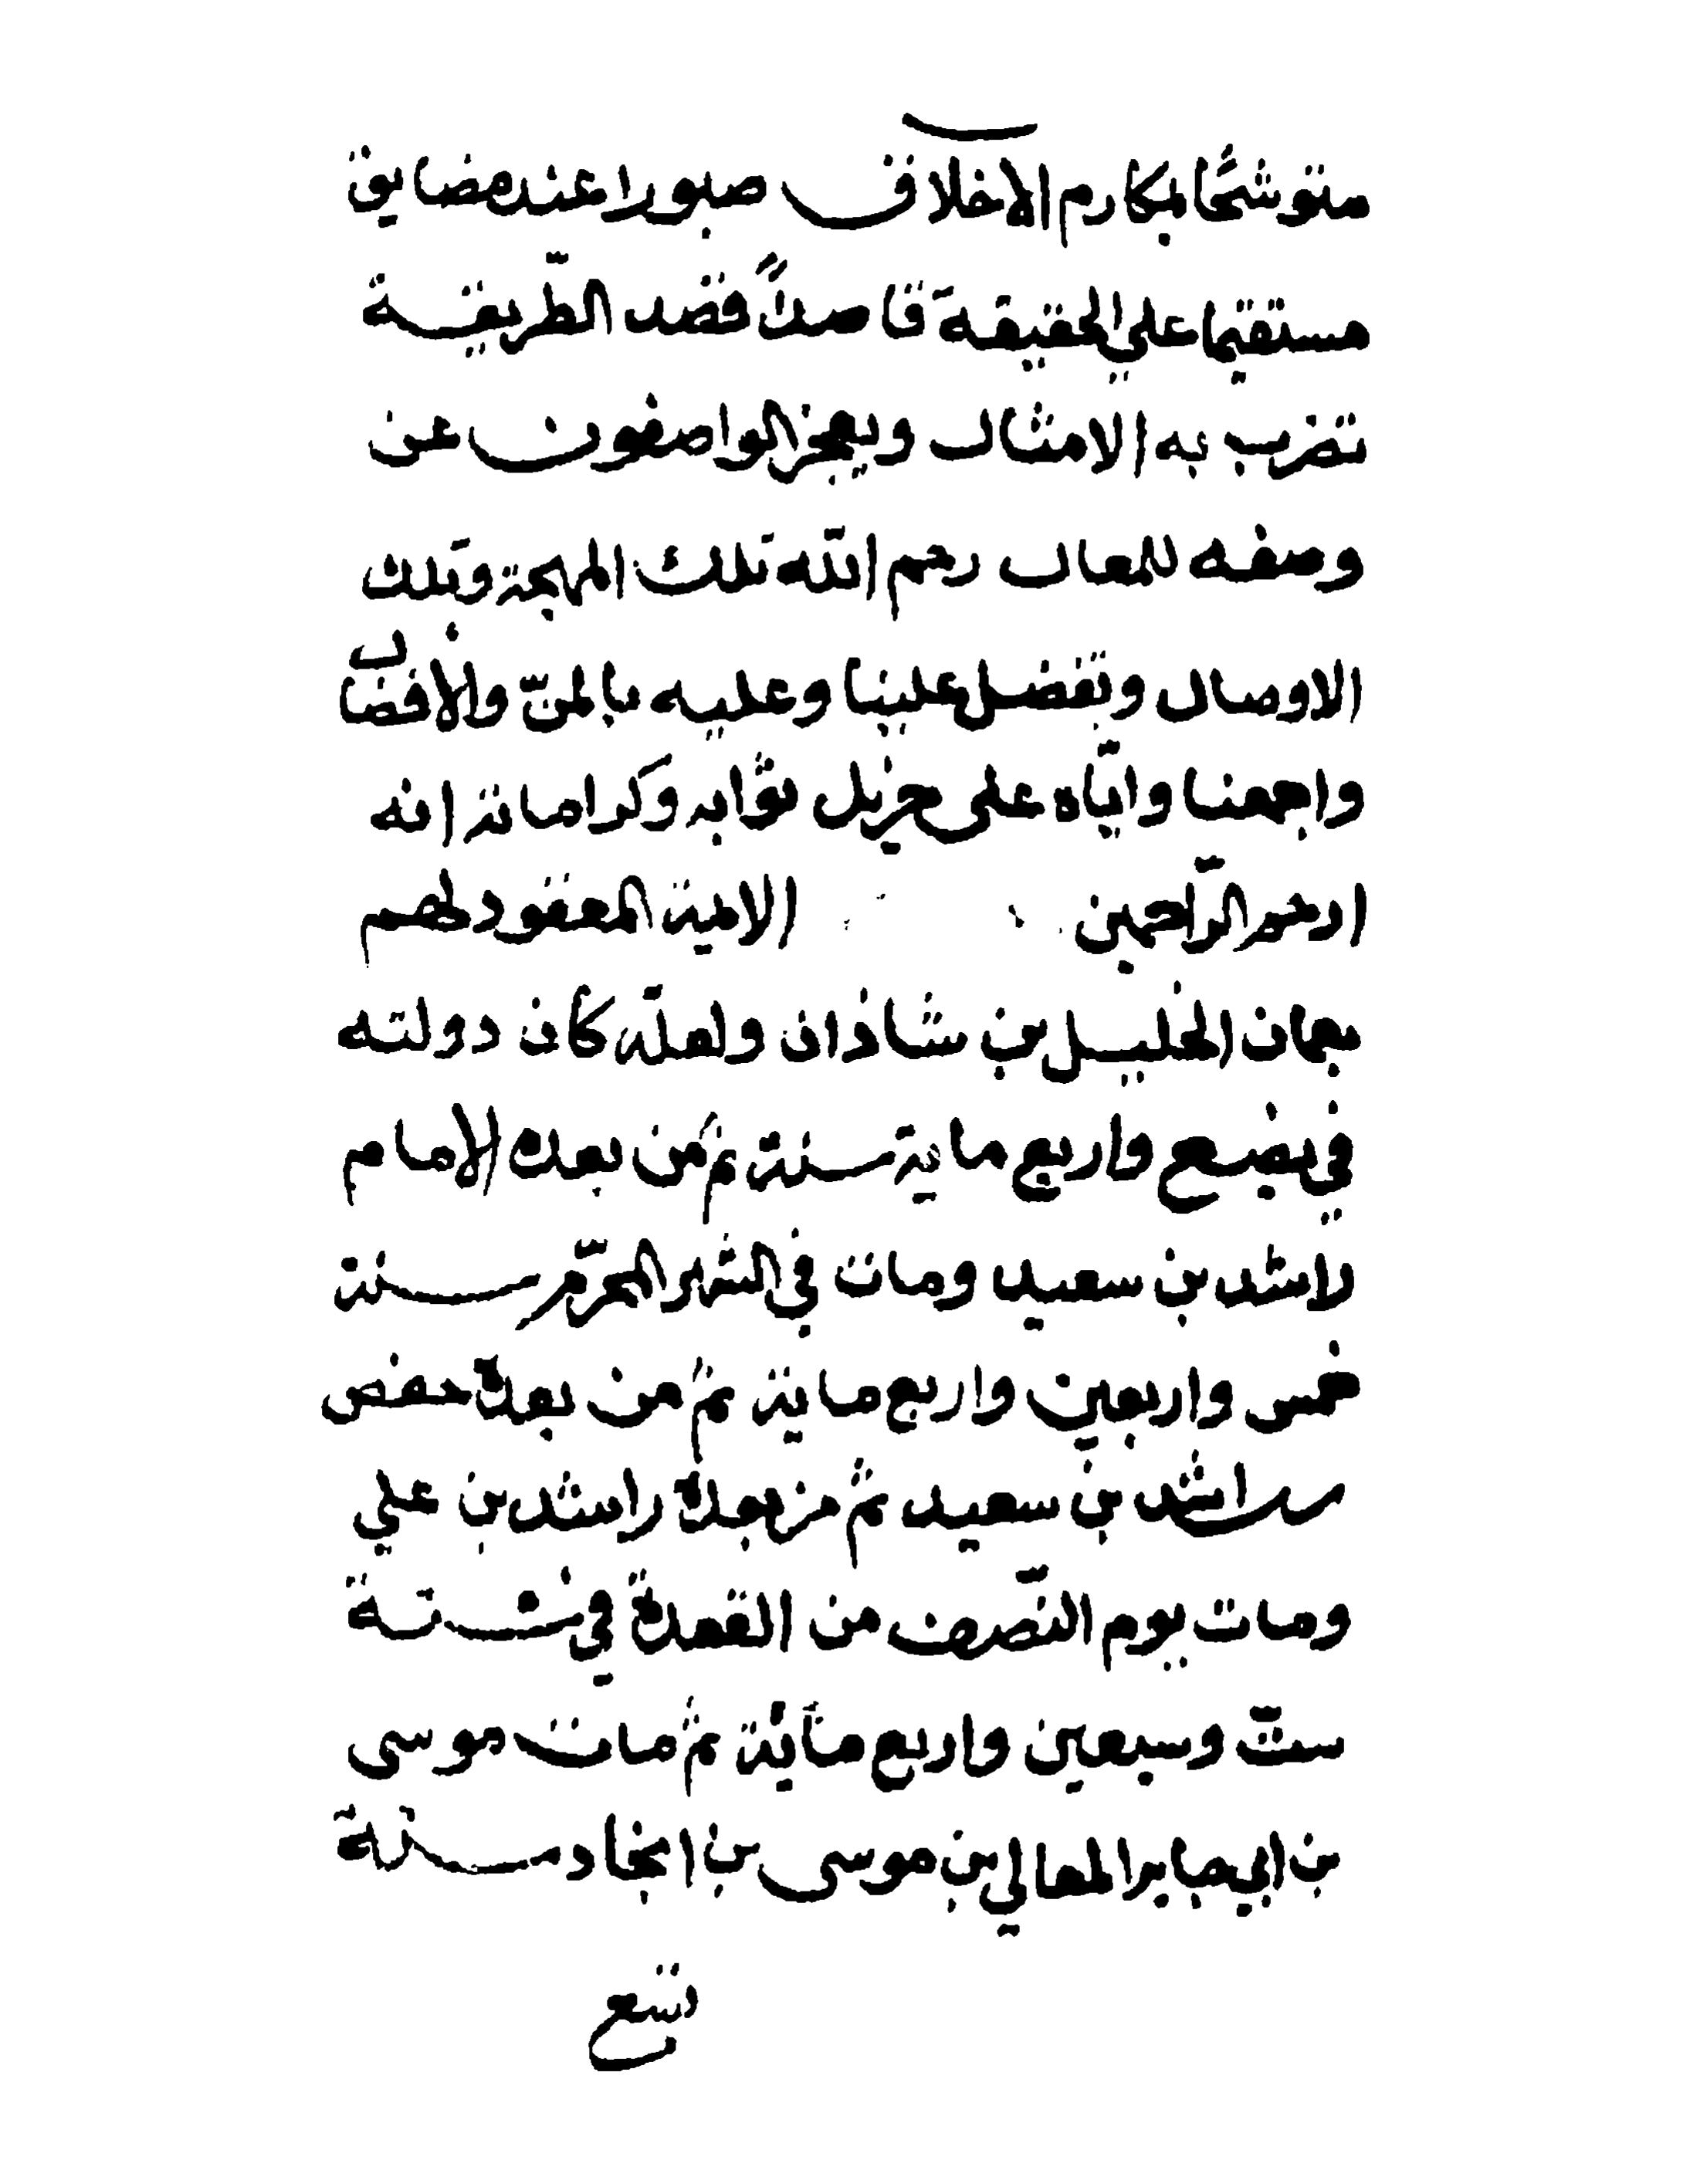 متوشحًا بمكارم الاخلاق صبورا عند مضايق
مستقيما علي الحقيقة قاصداً قصد الطّريقة
تضرب به الامثال ويعجز الواصفون عن
وصفه للمعال رحم الله تلك المهجة وتلك
الاوصال وتفضل علينا وعليه بالمنّ والافضال
واجمعنا وايّاه على جزيل ثوابه وكراماته إنه
ارحم الرّاحمين الايمة المعقود لهم
بعمان الخليل بن شاذان ولعلّه كان دولته
في بضع واربع ماية سنة ثم من بعده الامام
راشد بن سعيد ومات في الشهر المحرّم سنة
خمس واربعين واربع ماية ثم من بعده حفص
راشد بن سعيد ثم من بعده راشد بن علي
ومات يوم النّصف من القعدة في سنة
ستّ وسبعين واربع مأية ثم مات موسى
بن ابي جابر المعالي بن موسى بن انجاد سنة
تسع